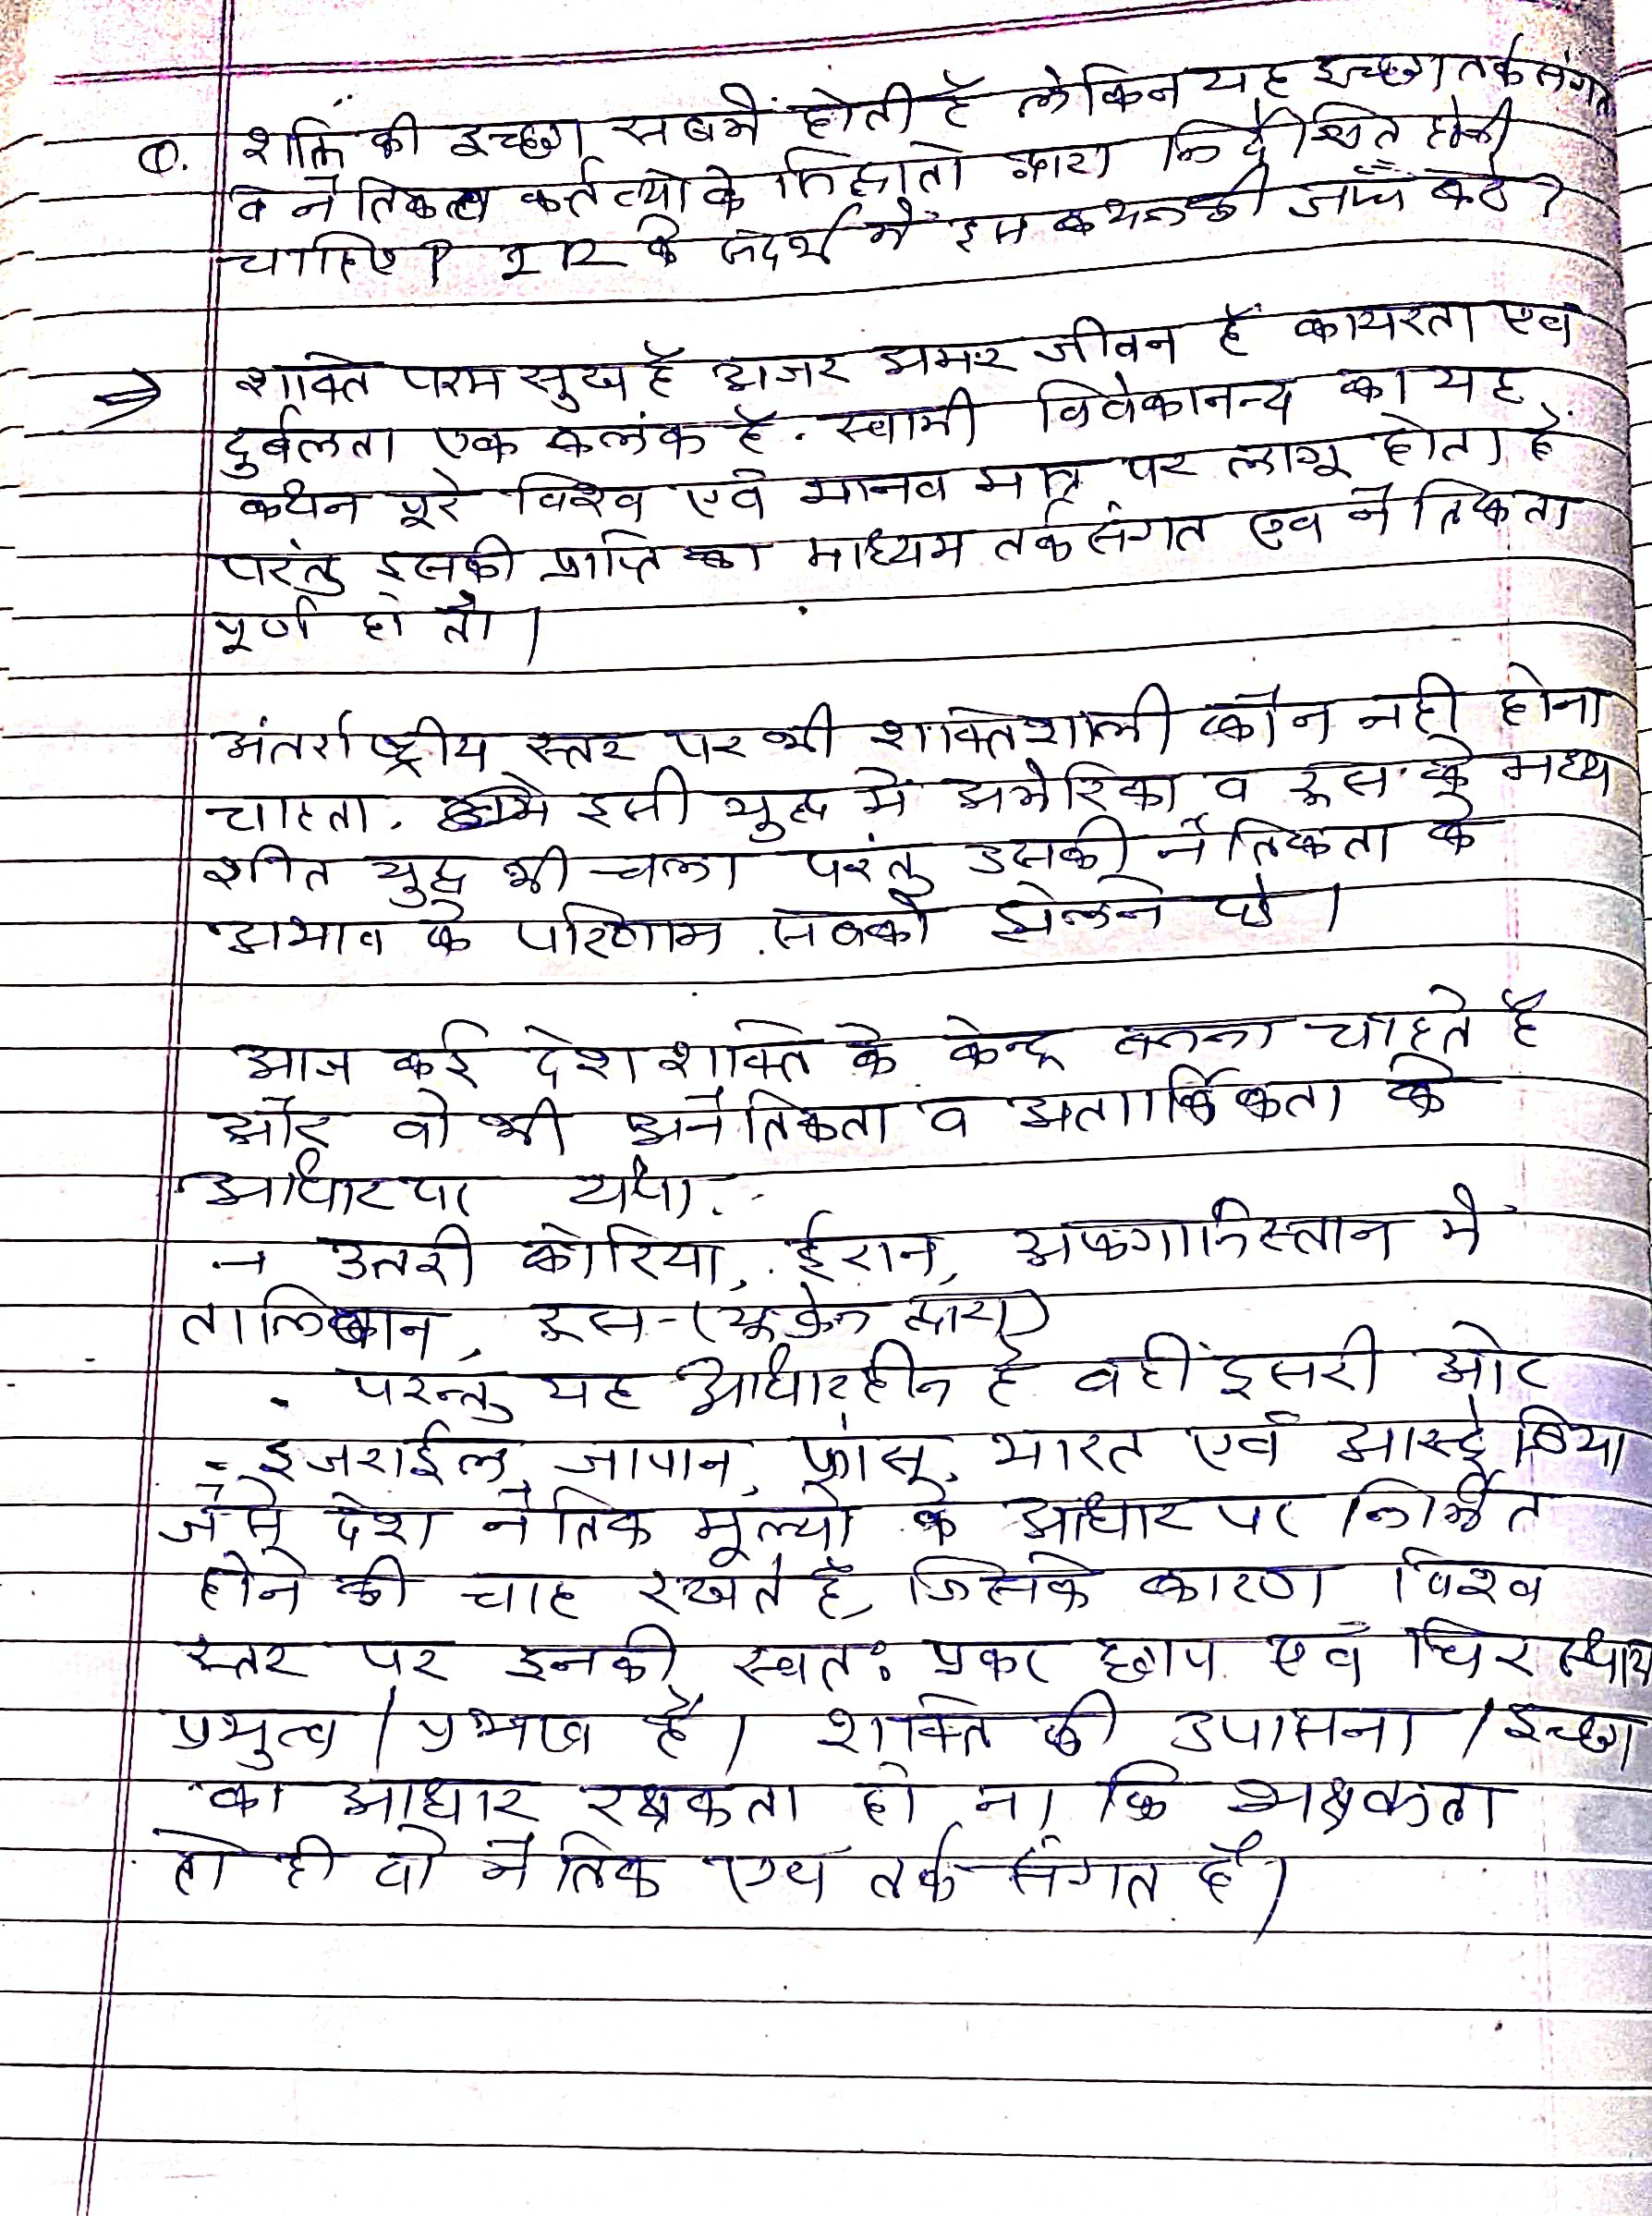 Q. शक्ति की इच्छा सबमें होती है लेकिन यह इच्छा तर्कसंगत
व नैतिकता कर्तव्यो के सिद्धातो द्वारा निर्देशित होनी
चाहिए। IR के संदर्भ में इस कथन की जाँच करें?
⇒ शक्ति परम सुख है अजर अमर जीवन है कायरता एवं
दुर्बलता एक कलंक है. स्वामी विवेकानन्द का यह
कथन पूरे विश्व एवं मानव मात्र पर लागू होता है.
परंतु इसकी प्राप्ति का माध्यम तर्कसंगत एवं नैतिकता
पूर्ण हो तो।
अंतर्राष्ट्रीय स्तर पर भी शक्तिशाली कौन नही होना
चाहता. इसी युद्ध में अमेरिका व रूस के मध्य
शीत युद्ध भी चला परंतु उसकी नैतिकता के
अभाव के परिणाम सबको झेलने पड़े।
आज कई देश शक्ति के केन्द्र बनना चाहते है
और वो भी अनैतिकता व अतार्किकता के
आधार पर यथा.
→ उत्तरी कोरिया, ईरान, अफगानिस्तान मे
तालिबान, रूस-(यूक्रेन द्वारा)
परन्तु यह आधारहीन है वहीं दुसरी ओर
→ इजराईल, जापान, फ्रांस, भारत एवं आस्ट्रेलिया
जैसे देश नैतिक मूल्यो के आधार पर निर्मित
होने की चाह रखते है, जिसके कारण विश्व
स्तर पर इनकी स्वतः प्रकर छाप एवं चिर स्थाय
प्रभुत्व / है। शक्ति की उपासना / इच्छा
का आधार रक्षकता हो ना कि भक्षकता
तो ही वो नैतिक एवं तर्क संगत है।